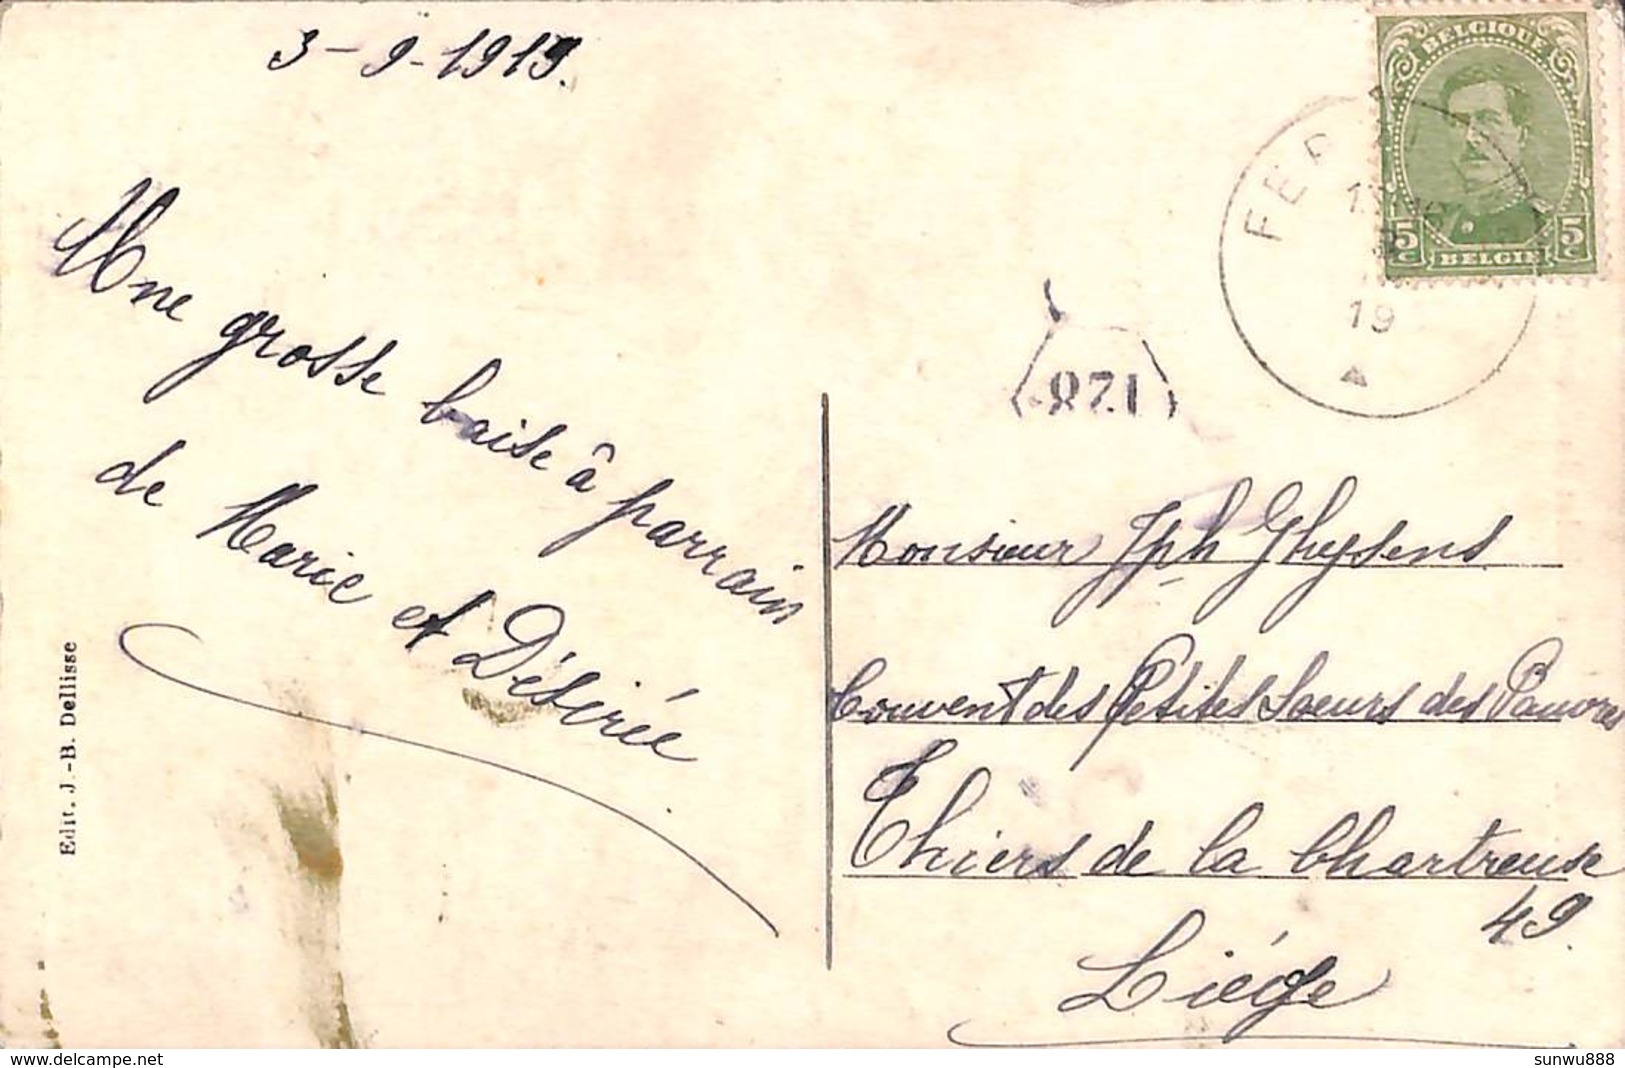 3-9-1919.
Une grosse baise à parrain
de Marie et Désirée
Edit. J.-B. Dellisse
BELGIQUE
5c 5c
BELGIE
19
128
Monsieur Jph Gheysens
Couvent des Petites Soeurs des Pauvres
Thiers de la Chartreuse
49.
Liége
www.delcampe.net
sunwu888